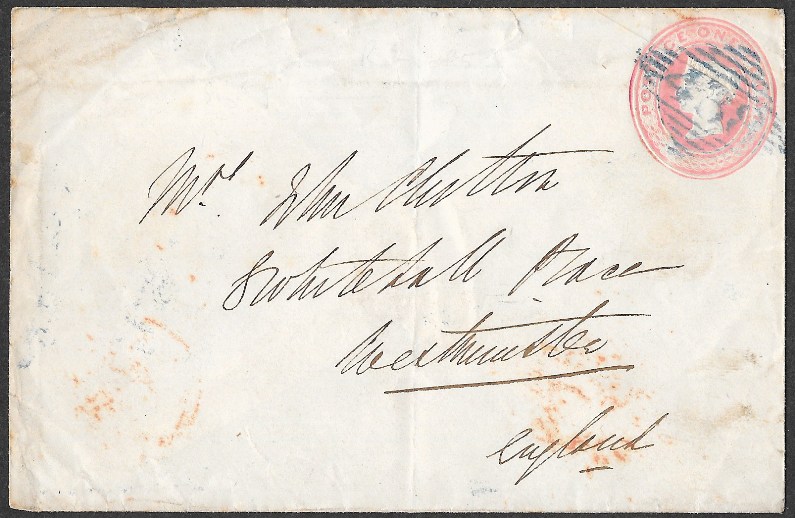 POSTAGE ONE
Mrs. John Clutton
8 Whitehall Place
Westminster
England